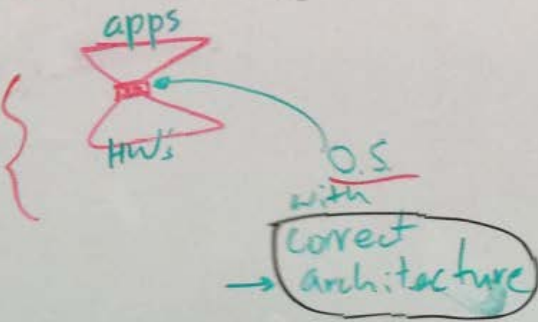 apps
HW's
O.S.
with
correct
architecture